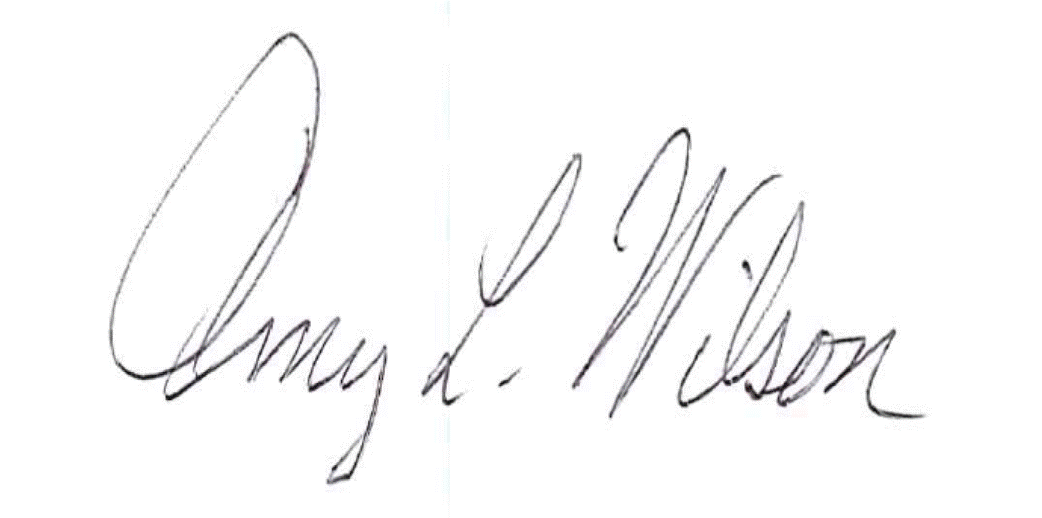 Amy L. Wilson